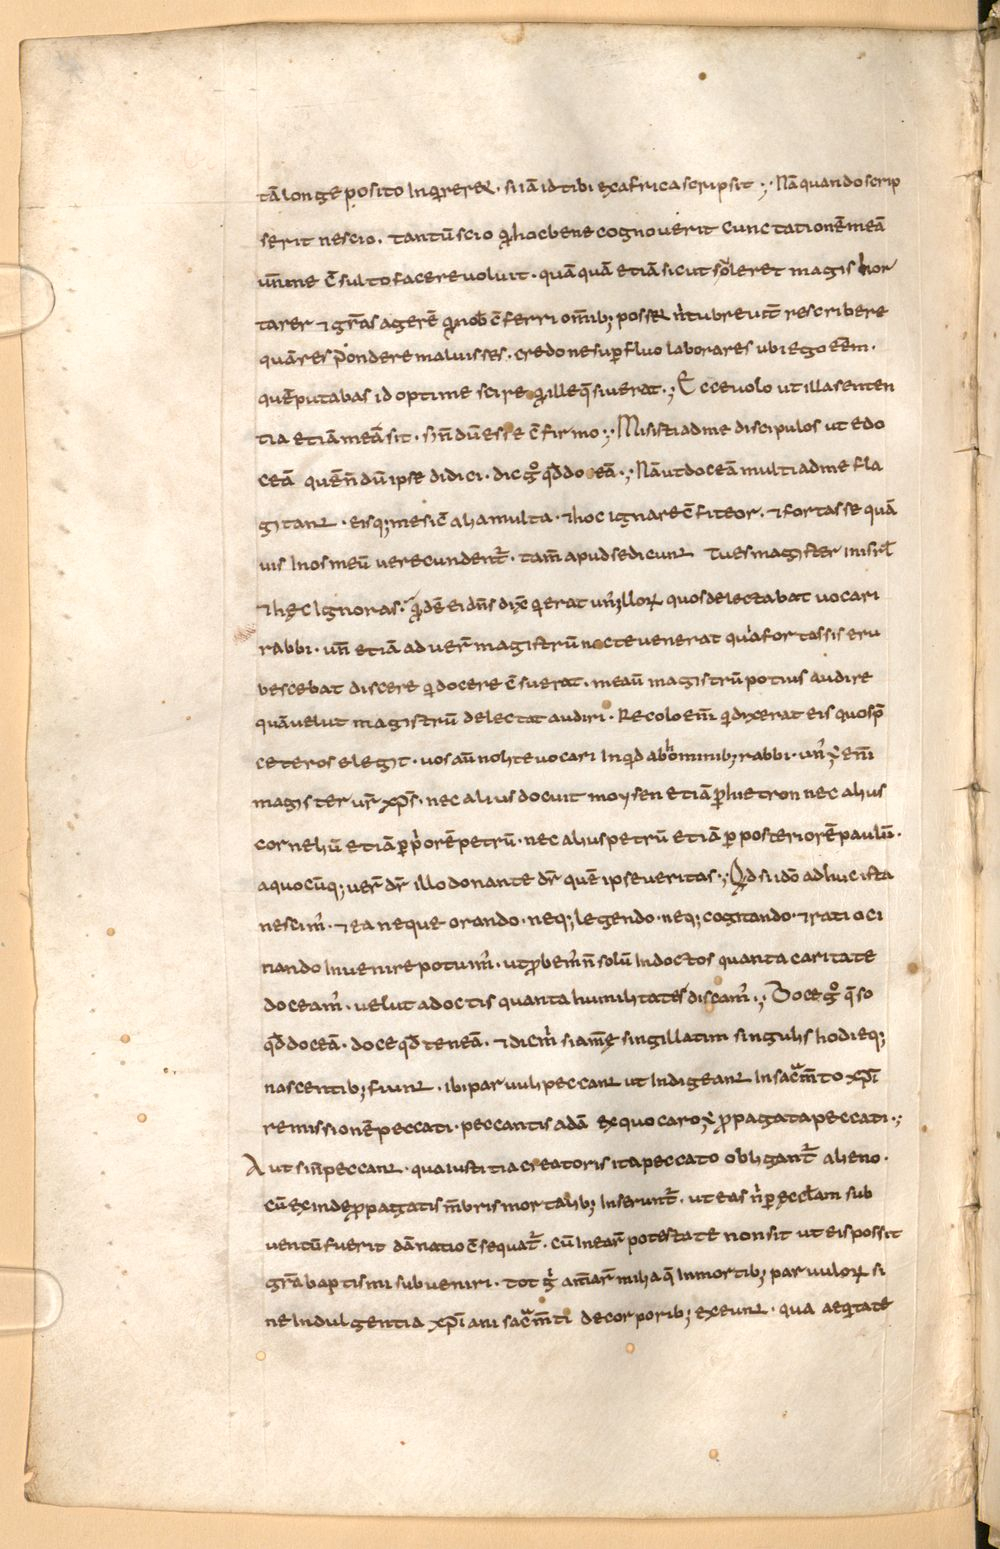 tā longe posito inq̄rereȶ. si iā id tibi ex africa scripsit ;· Nā quando scrip
serit nescio. tantū scio q̄ hoc bene cognoverit cunctationē meā
un̄ me c̄sulto facere voluit. quāquā etiā si c̄ ut soleret magis hor
tarer & gr̄as agerē q̄ nob̄ c̄ferri om̄ib; posseȶ n̄ tu breuit̄ rescribere
quā respondere maluisses. credo ne sup̄fluo laborares ubi ego eēm.
quē putabas id optime scire q̄ ille q̄siverat ·; Ecce volo ut illa senten
tia etiā mea sit. s; n̄dū esse c̄firmo ;· Misisti ad me discipulos ut edo
ceā quē n̄dū ipse didici. dic g̊ qd̄ doceā ·; Nā ut doceā multi ad me fla
gitanȶ. eisq; me sic̄ alia multa. & hoc ignare c̄fiteor. & fortasse quā
vis in os meū verecundent̄. tam̄ apud se dicunȶ Tu es magister in isrl̄
& hęc ignoras. qd̄ ē ei dn̄s dix̄ q̄ erat un̄; illorȶ quos delectabat vocari
rabbi. un̄ etiā ad ver̄ magistrū nocte venerat quia fortassis eru
bescebat discere q̄ docere c̄suerat. me aū magistrū potius audire
quā velut magistrū delectat audiri. Recolo em̄ q̄ dixerat eis quos p̄
ceteros elegit. vos aū nolite vocari inqd ab hominib; rabbi. un̄; ē em̄
magister vr̄ xp̄s. nec alius docuit moysen etiā p̄ hietron nec alius
corneliū etiā p̄ p̄orē petrū. nec alius petrū etiā p̄ posteriorē paulū.
a quocūq; ver̄ dr̄ illo donante dr̄ quē ipse veritas ·; Qd̄ si idō adhuc ista
nescim̄. & ea neque orando. neq; legendo. neq; cogitando. & ratioci
nando invenire potuim̄. ut p̄bem̄ n̄ solū indoctos quanta caritate
doceam̄. velut a doctis quanta humilitate discam̄ ·; Doce g̊ q̄so
qd̄ doceā. doce qd̄ teneā. & dic m̄ si amē singillatim singulis hodieq;
nascentib; fiunȶ. ibi parvuli peccanȶ ut indigeanȶ in sacm̄to xp̄i
remissionē peccati. peccantis adā ex quo caro ē p̄pagata peccati ·;
Aut si n̄ peccanȶ. qua iustitia creatoris ita peccato obligant̄ alieno.
cū exinde p̄pagatis m̄bris mortalib; inserunt̄. ut eas n̄ p̄ eccl̄am sub
ventū fuerit dānatio c̄sequat̄. cū in ear̄ potestate non sit ut eis possit
gr̄a baptismi subveniri. tot g̊ amar̄ milia q̄ in mortib; parvulorȶ si
ne indulgentia xp̄iani sacm̄ti de corporib; exeunȶ. qua aeq̄tate